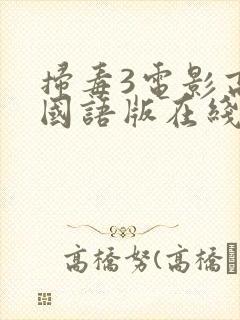 掃毒3電影高
國語版在綫
高橋努(高橋